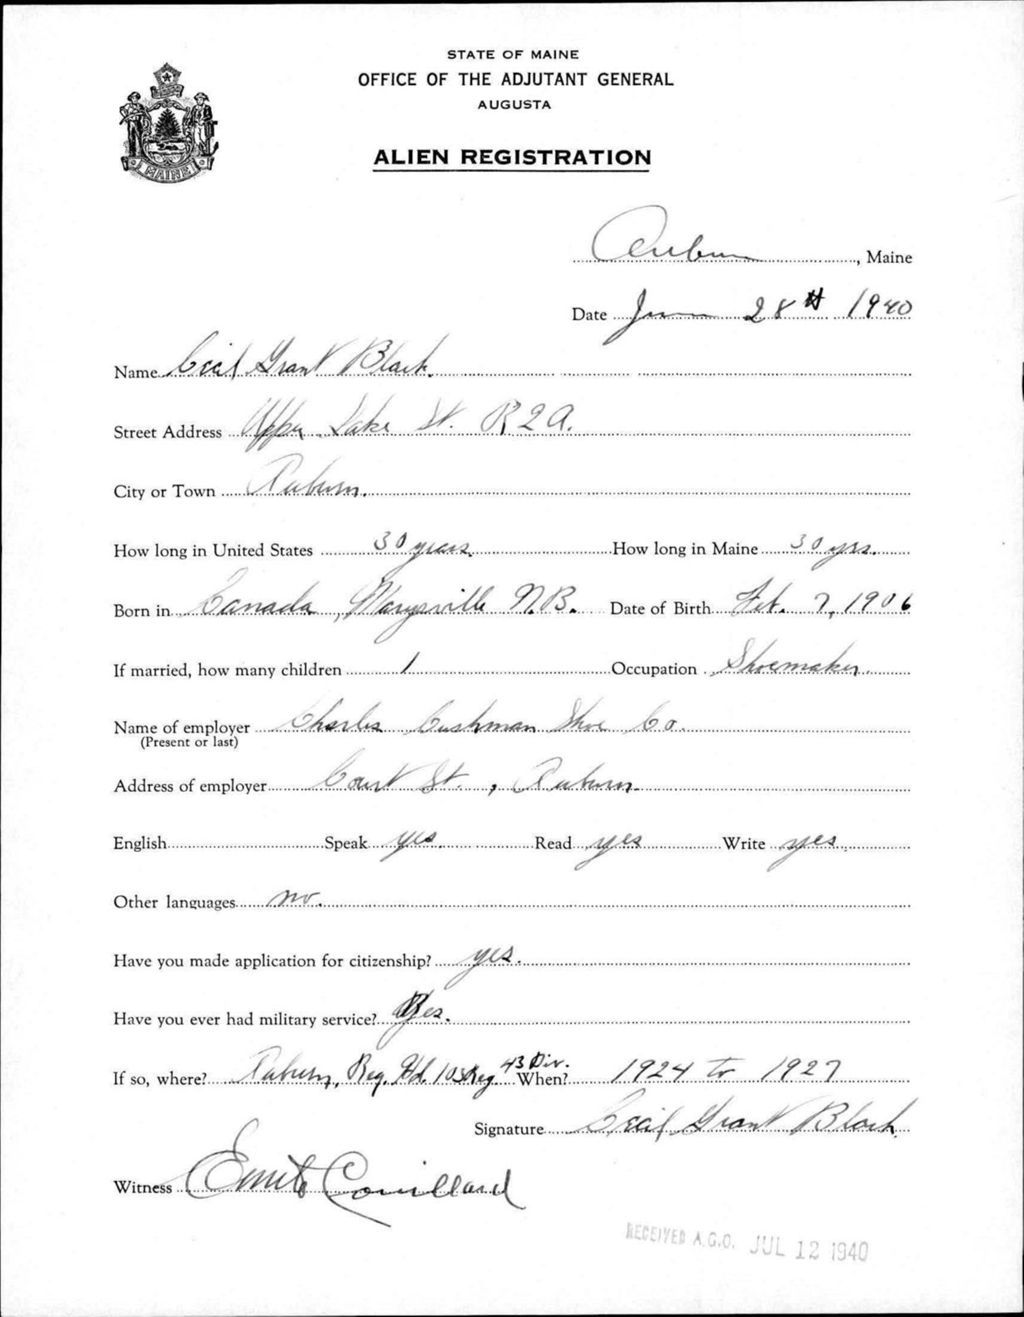 STATE OF MAINE
OFFICE OF THE ADJUTANT GENERAL
AUGUSTA
ALIEN REGISTRATION
MAINE
Auburn, Maine
Date June 28th 1940
Name Cecil Grant Black.
Street Address Upper Lake St. R2A.
City or Town Auburn.
How long in United States 30 years. How long in Maine 30 yrs.
Born in Canada, Marysville N.B. Date of Birth Feb. 7, 1906
If married, how many children 1 Occupation Shoemaker
Name of employer Charles Cushman Shoe Co.
(Present or last)
Address of employer Court St., Auburn.
English Speak yes. Read yes Write yes.
Other languages no.
Have you made application for citizenship? yes.
Have you ever had military service? Yes.
If so, where? Auburn, Reg. Hd. 103 Reg 43 Div. When? 1924 to 1927
Signature Cecil Grant Black
Witness Couillard
RECEIVED A.G.O. JUL 12 1940